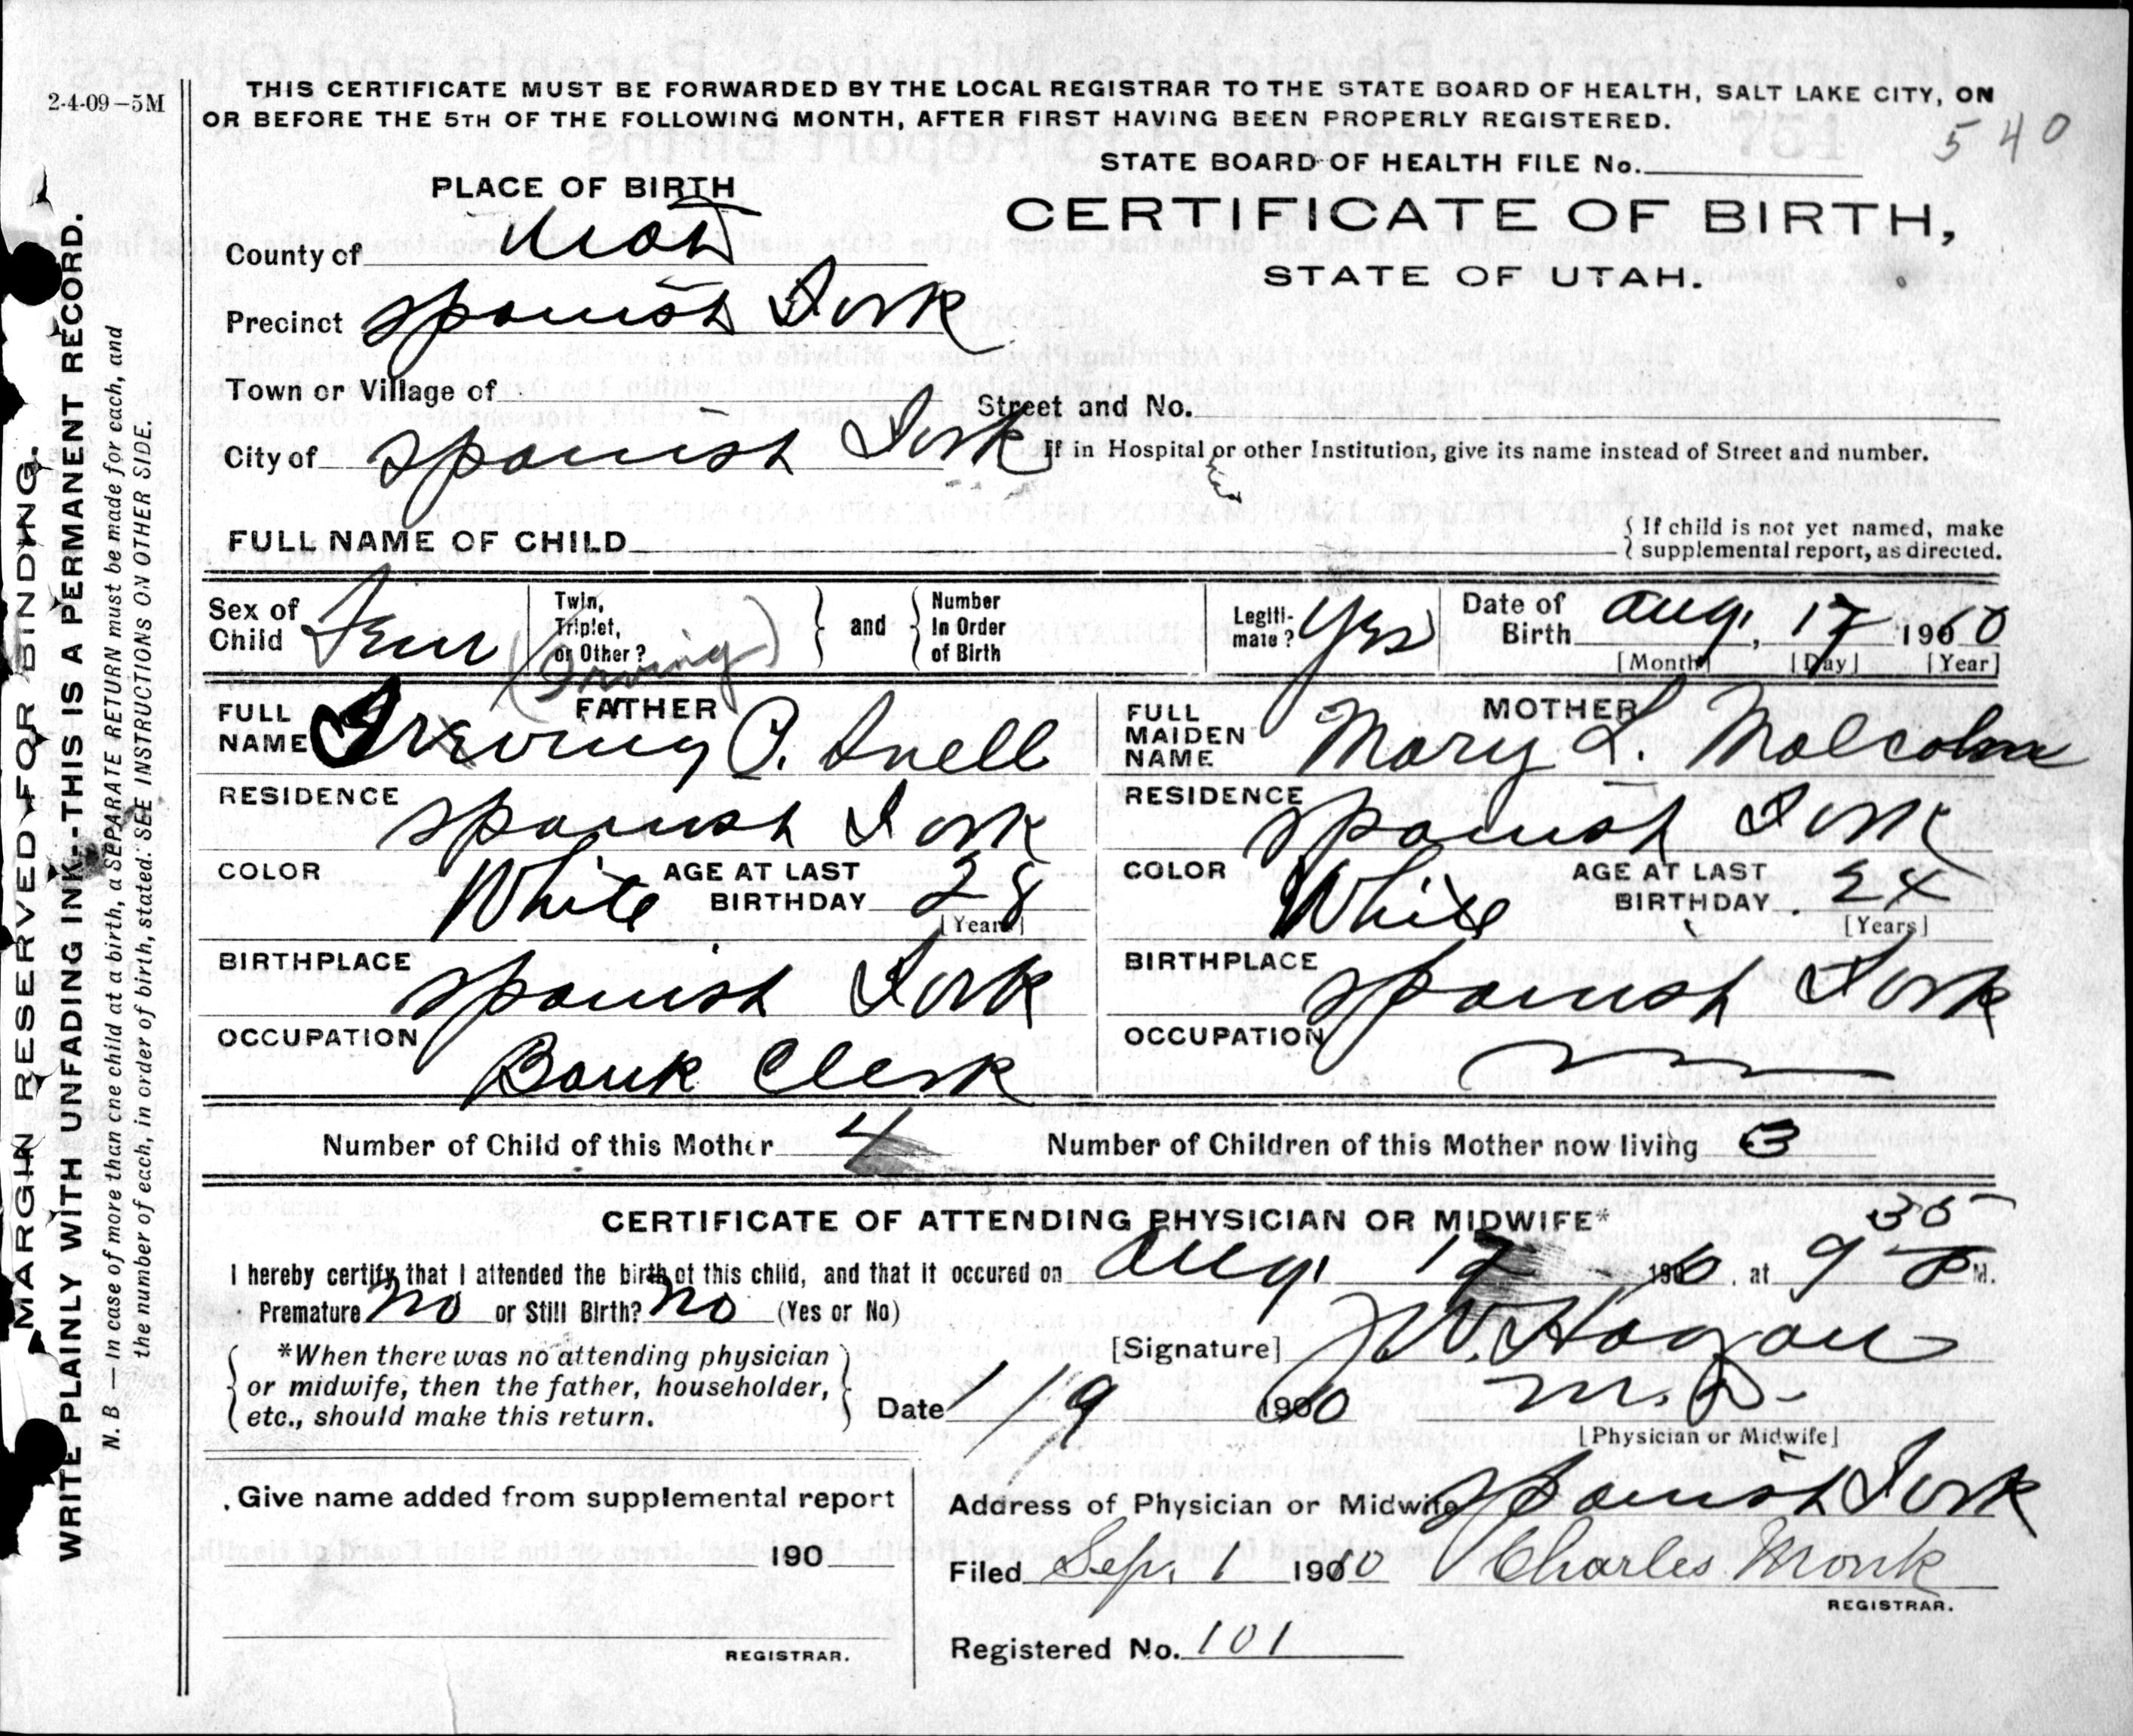 2-4-09—5M
THIS CERTIFICATE MUST BE FORWARDED BY THE LOCAL REGISTRAR TO THE STATE BOARD OF HEALTH, SALT LAKE CITY, ON
OR BEFORE THE 5TH OF THE FOLLOWING MONTH, AFTER FIRST HAVING BEEN PROPERLY REGISTERED.
540
STATE BOARD OF HEALTH FILE No.
PLACE OF BIRTH
CERTIFICATE OF BIRTH,
STATE OF UTAH.
County of Utah
Precinct Spanish Fork
Town or Village of
Street and No.
City of Spanish Fork
If in Hospital or other Institution, give its name instead of Street and number.
FULL NAME OF CHILD
{ If child is not yet named, make
{ supplemental report, as directed.
Sex of Child Fem
Twin, Triplet, or Other?
} and {
Number In Order of Birth
Legitimate? Yes
Date of Birth Aug, 17 1910
[Month] [Day] [Year]
(Irving)
FATHER
FULL NAME Irving P. Snell
MOTHER
FULL MAIDEN NAME Mary L. Malcolm
RESIDENCE Spanish Fork
RESIDENCE Spanish Fork
COLOR White AGE AT LAST BIRTHDAY 28
[Years]
COLOR White AGE AT LAST BIRTHDAY 24
[Years]
BIRTHPLACE Spanish Fork
BIRTHPLACE Spanish Fork
OCCUPATION Bank Clerk
OCCUPATION
Number of Child of this Mother 4
Number of Children of this Mother now living 3
CERTIFICATE OF ATTENDING PHYSICIAN OR MIDWIFE*
I hereby certify that I attended the birth of this child, and that it occured on Aug. 17 1910, at 9 30 P M.
Premature No or Still Birth? No (Yes or No)
*When there was no attending physician
or midwife, then the father, householder,
etc., should make this return.
[Signature] J W. Hagan
M.D.
Date 1/9 1910
[Physician or Midwife]
Give name added from supplemental report
190
REGISTRAR.
Address of Physician or Midwife Spanish Fork
Filed Sep. 1 1910 Charles Monk
REGISTRAR.
Registered No. 101
MARGIN RESERVED FOR BINDING.
WRITE PLAINLY WITH UNFADING INK--THIS IS A PERMANENT RECORD.
N. B — In case of more than one child at a birth, a SEPARATE RETURN must be made for each, and
the number of each, in order of birth, stated. SEE INSTRUCTIONS ON OTHER SIDE.